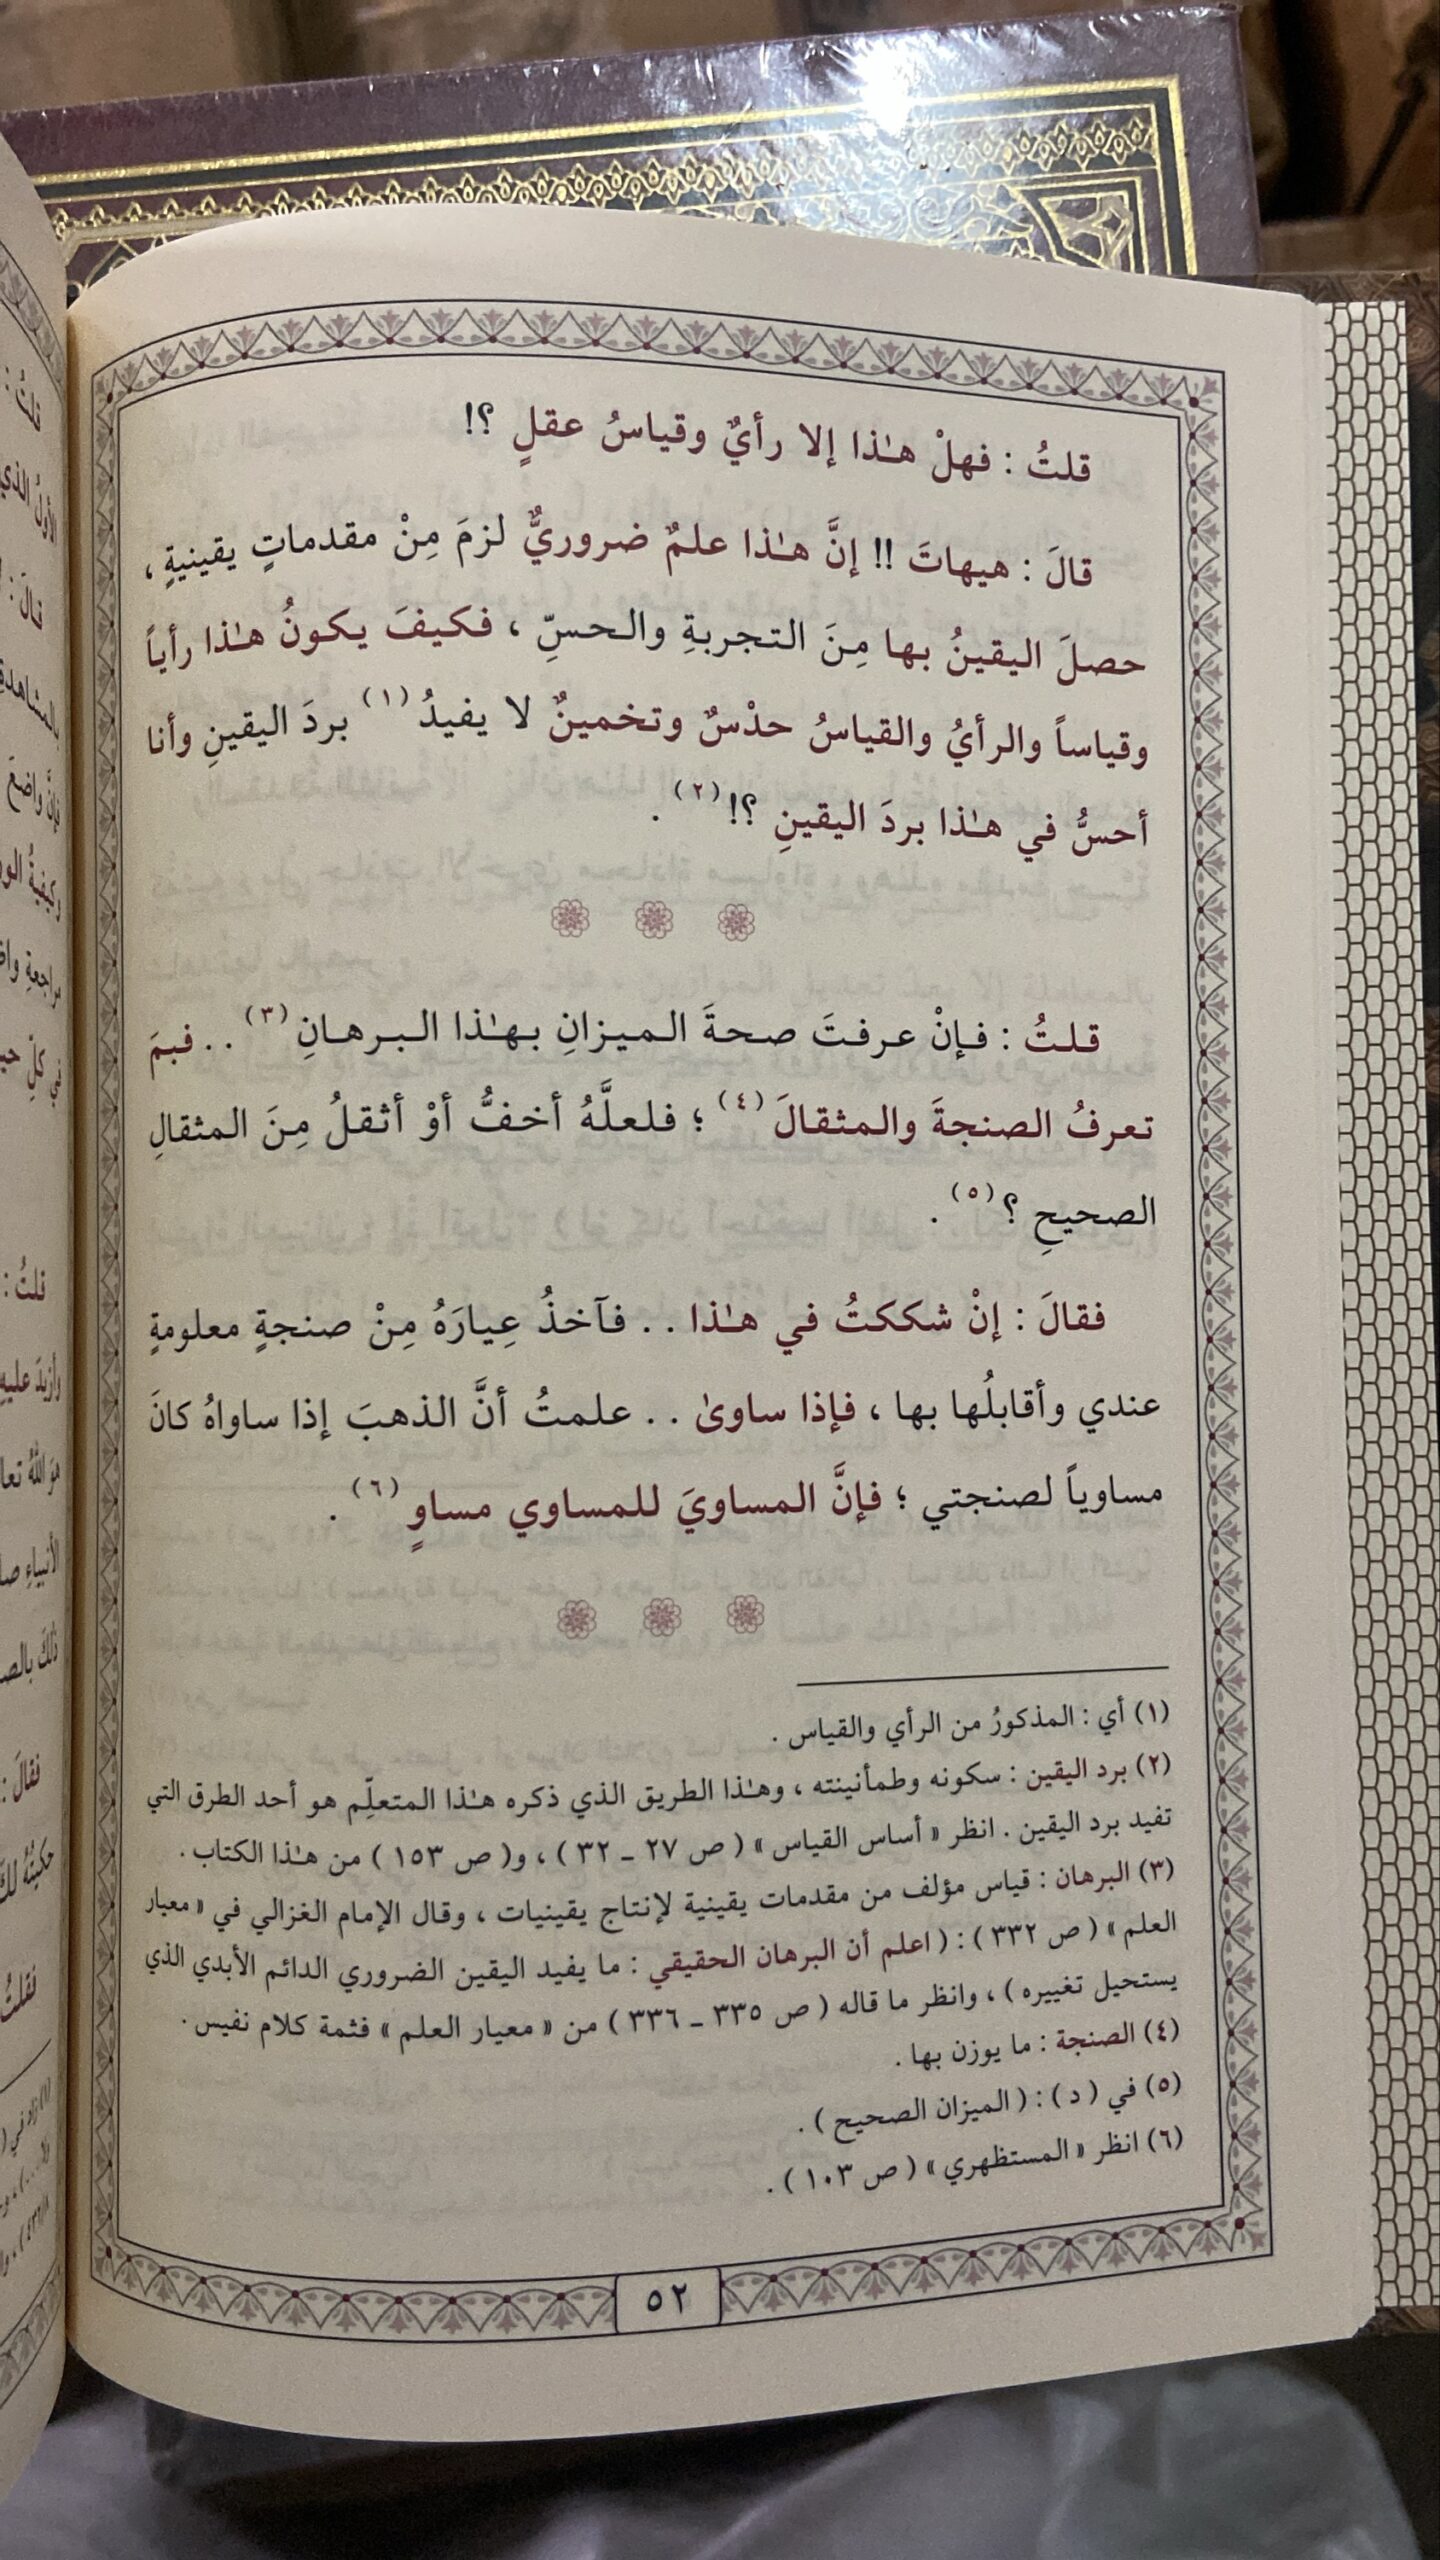 قلتُ : فهلْ هـٰذا إلا رأيٌ وقياسُ عقلٍ ؟!
قالَ : هيهاتَ !! إنَّ هـٰذا علمٌ ضروريٌّ لزمَ مِنْ مقدماتٍ يقينيةٍ ،
حصلَ اليقينُ بها مِنَ التجربةِ والحسِّ ، فكيفَ يكونُ هـٰذا رأياً
وقياساً والرأيُ والقياسُ حدْسٌ وتخمينٌ لا يفيدُ(١) بردَ اليقينِ وأنا
أحسُّ في هـٰذا بردَ اليقينِ ؟!(٢) .
قلتُ : فإنْ عرفتَ صحةَ الميزانِ بهـٰذا البرهانِ(٣) . . فبمَ
تعرفُ الصنجةَ والمثقالَ(٤) ؛ فلعلَّهُ أخفُّ أوْ أثقلُ مِنَ المثقالِ
الصحيحِ ؟(٥) .
فقالَ : إنْ شككتُ في هـٰذا . . فآخذُ عِيارَهُ مِنْ صنجةٍ معلومةٍ
عندي وأقابلُها بها ، فإذا ساوىٰ . . علمتُ أنَّ الذهبَ إذا ساواهُ كانَ
مساوياً لصنجتي ؛ فإنَّ المساويَ للمساوي مساوٍ(٦) .
(١) أي : المذكورُ من الرأي والقياس .
(٢) برد اليقين : سكونه وطمأنينته ، وهـٰذا الطريق الذي ذكره هـٰذا المتعلِّم هو أحد الطرق التي
تفيد برد اليقين . انظر « أساس القياس » ( ص ٢٧ ـ ٣٢ ) ، و( ص ١٥٣ ) من هـٰذا الكتاب .
(٣) البرهان : قياس مؤلف من مقدمات يقينية لإنتاج يقينيات ، وقال الإمام الغزالي في « معيار
العلم » ( ص ٣٣٢ ) : ( اعلم أن البرهان الحقيقي : ما يفيد اليقين الضروري الدائم الأبدي الذي
يستحيل تغييره ) ، وانظر ما قاله ( ص ٣٣٥ ـ ٣٣٦ ) من « معيار العلم » فثمة كلام نفيس .
(٤) الصنجة : ما يوزن بها .
(٥) في ( د ) : ( الميزان الصحيح ) .
(٦) انظر « المستظهري » ( ص ١٠٣ ) .
٥٢